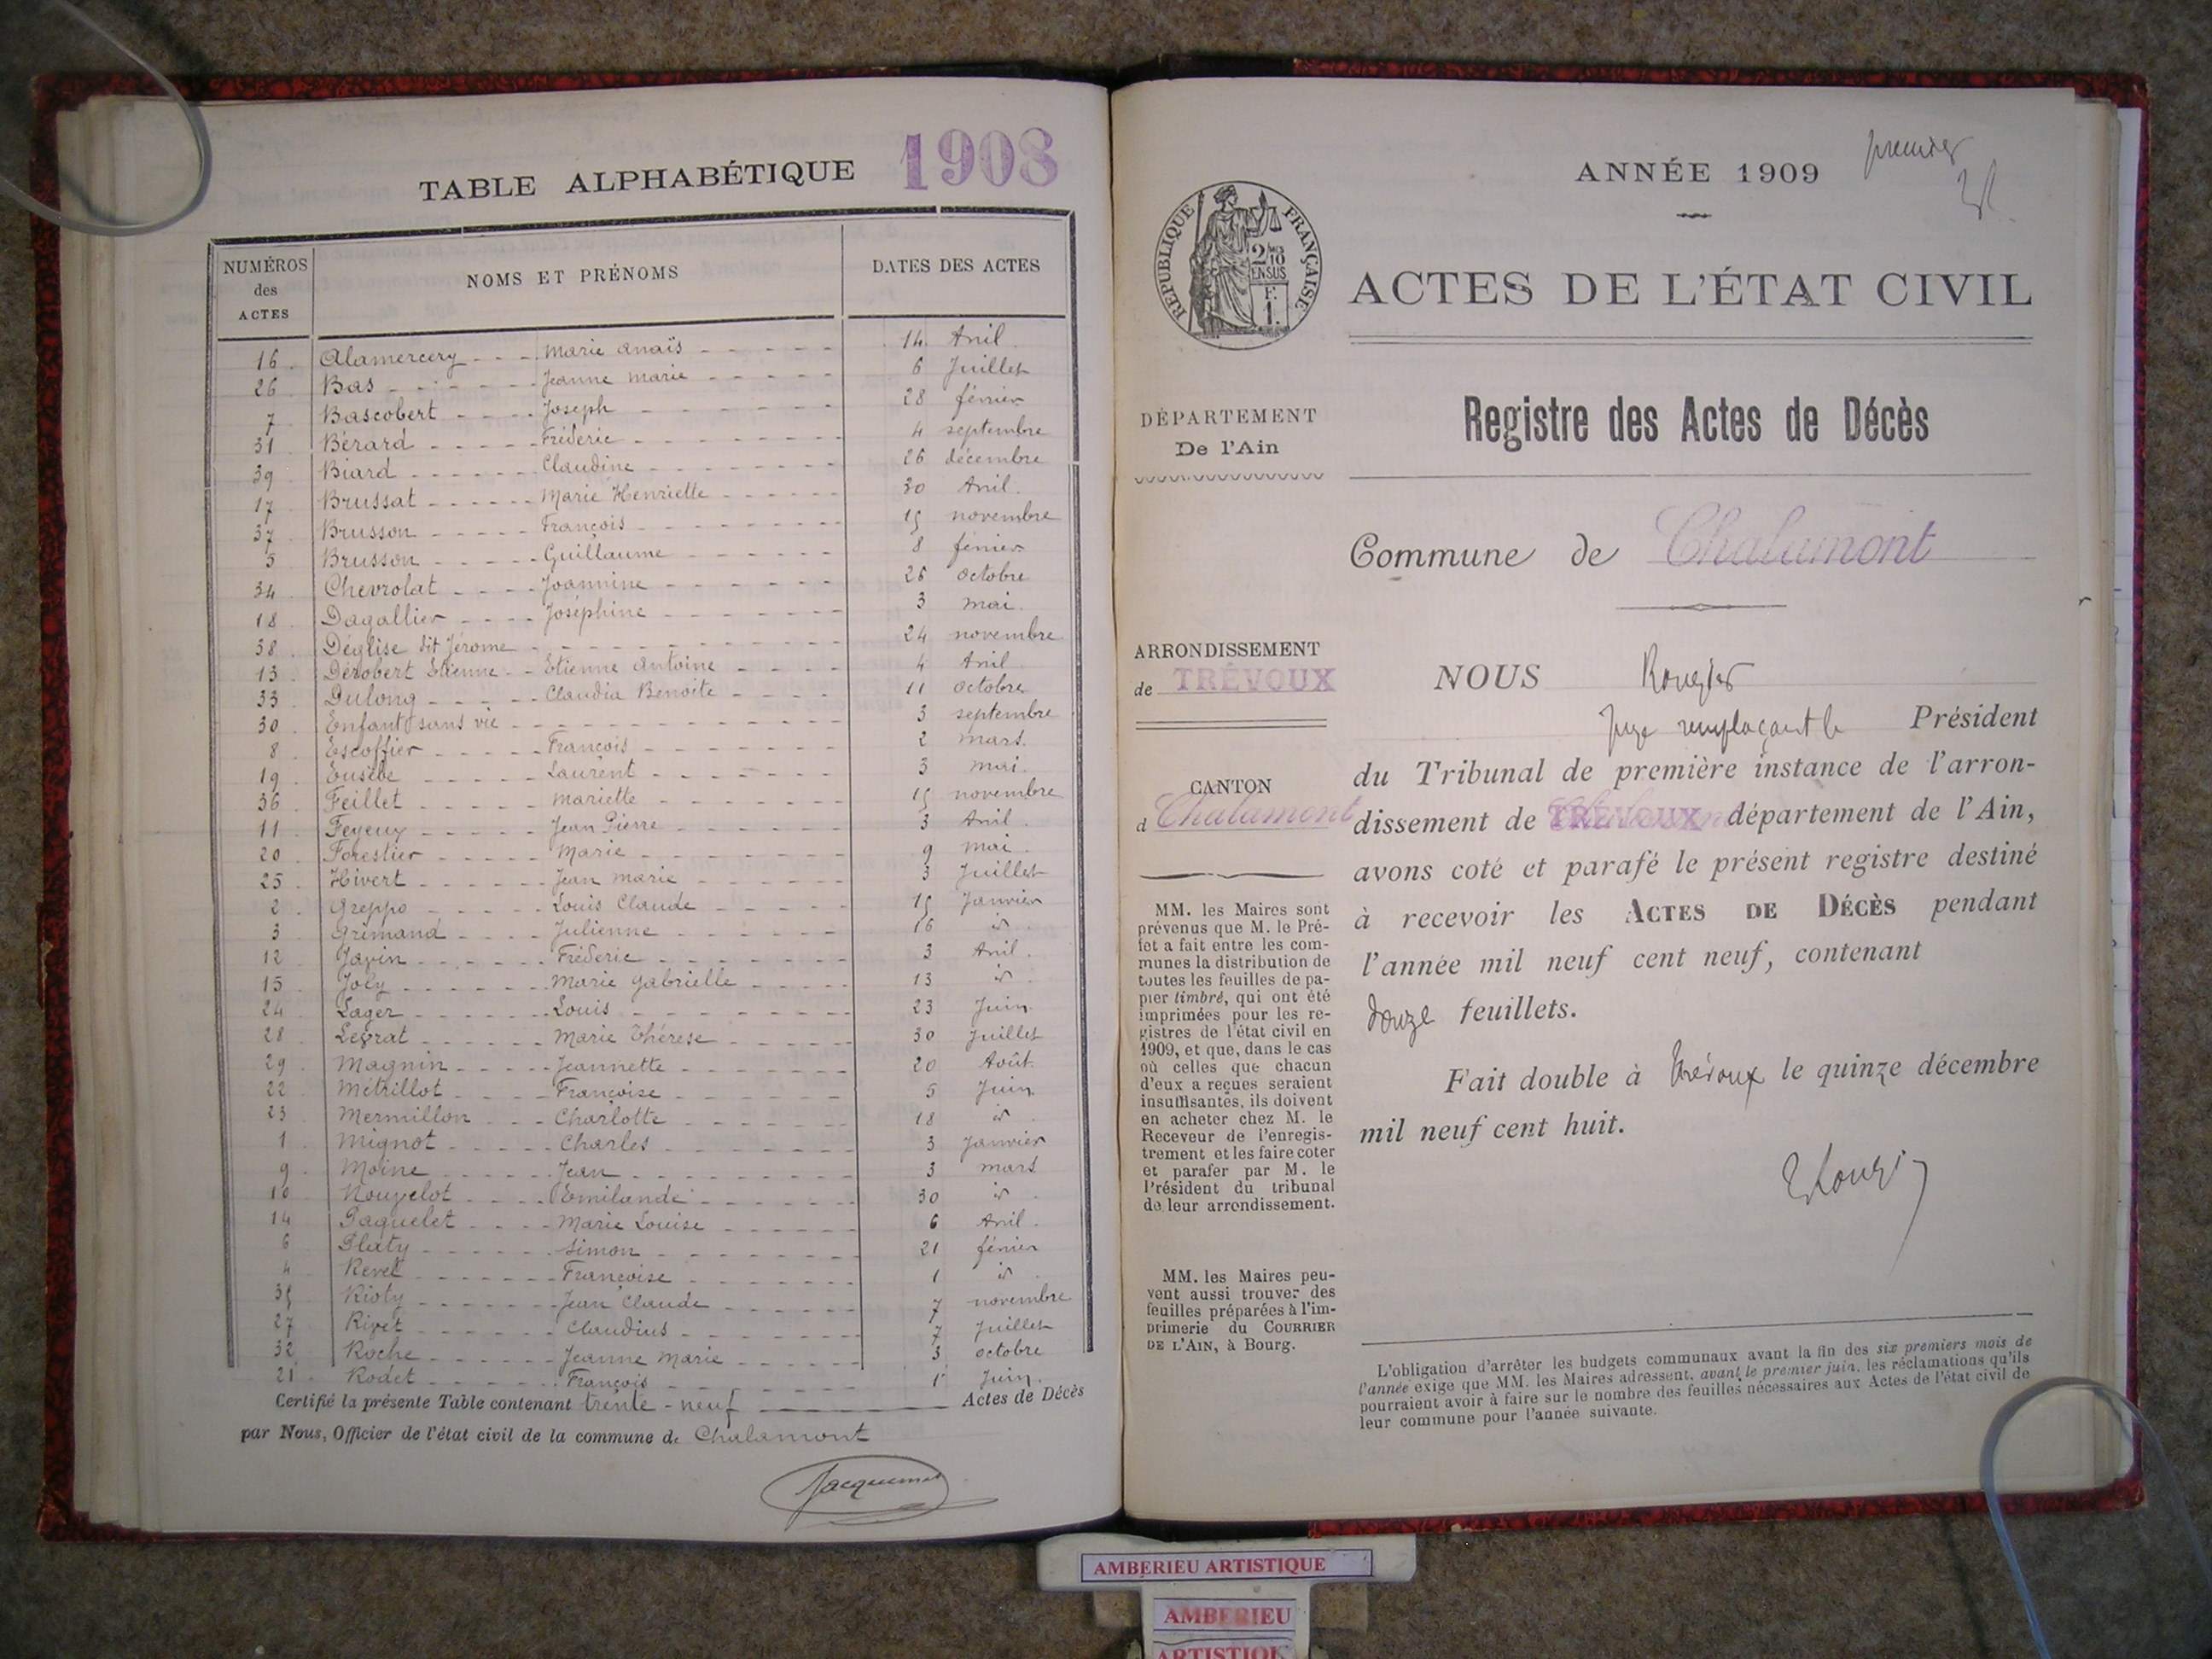 TABLE ALPHABÉTIQUE 1908
NUMÉROS des ACTES NOMS ET PRÉNOMS DATES DES ACTES
16. Alamercery Marie Anaïs 14 Avril
26 Bas Jeanne Marie 6 Juillet
7 Bascobert Joseph 28 février
31 Bérard Fréderic 4 septembre
39 Biard Claudine 26 décembre
17 Brussat Marie Henriette 30 Avril.
37 Brusson François 15 novembre
5 Brusson Guillaume 8 février
34. Chevrolat Joannine 26 octobre
18 Dagallier Joséphine 3 mai.
38. Déglise dit Jérome 24 novembre
13 Dérobert Etienne Etienne Antoine 4 Avril
33 Dulong Claudia Benoite 11 octobre
30. Enfant sans vie 3 septembre
8. Escoffier François 2 mars.
19 Eusèbe Laurent 3 mai.
36 Feillet Mariette 15 novembre
11. Feyeux Jean Pierre 3 Avril.
20. Forestier Marie 9 mai.
25. Hivert Jean Marie 3 Juillet
2. Greppo Louis Claude 15 Janvier
3 Grimand Julienne 16 id
12 Javin Fréderic 3 Avril.
15 Joly Marie Gabrielle 13 id
24 Lager Louis 23 Juin
28 Legrat Marie Thérèse 30 Juillet
29 Magnin Jeannette 20 Août.
22 Métrillot Françoise 5 Juin
23 Mermillon Charlotte 18 id
1 Mignot Charles 3 Janvier
9. Moine Jean 3 mars
10 Nouvelot Emilande 30 id
14 Paquelet Marie Louise 6 Avril.
6 Platy Simon 21 février
4 Revel Françoise 1 id
35 Rioty Jean Claude 7 novembre
27 Rivet Claudius 7 Juillet
32 Roche Jeanne Marie 3 octobre
21 Rodet François 1 Juin.
Certifié la présente Table contenant trente-neuf Actes de Décès
par Nous, Officier de l'état civil de la commune de Chalamont
Jacquemet
ANNÉE 1909 premier
RÉPUBLIQUE FRANÇAISE
ACTES DE L'ÉTAT CIVIL
DÉPARTEMENT
De l'Ain
Registre des Actes de Décès
Commune de Chalamont
ARRONDISSEMENT
de TRÉVOUX
NOUS Rougier
Juge remplaçant le Président
du Tribunal de première instance de l'arron-
dissement de TRÉVOUX département de l'Ain,
avons coté et parafé le présent registre destiné
à recevoir les ACTES DE DÉCÈS pendant
l'année mil neuf cent neuf, contenant
douze feuillets.
Fait double à Trévoux le quinze décembre
mil neuf cent huit.
CANTON
d Chalamont
MM. les Maires sont
prévenus que M. le Pré-
fet a fait entre les com-
munes la distribution de
toutes les feuilles de pa-
pier timbré, qui ont été
imprimées pour les re-
gistres de l'état civil en
1909, et que, dans le cas
où celles que chacun
d'eux a reçues seraient
insuffisantes, ils doivent
en acheter chez M. le
Receveur de l'enregis-
trement et les faire coter
et parafer par M. le
Président du tribunal
de leur arrondissement.
MM. les Maires peu-
vent aussi trouver des
feuilles préparées à l'im-
primerie du COURRIER
DE L'AIN, à Bourg.
L'obligation d'arrêter les budgets communaux avant la fin des six premiers mois de
l'année exige que MM. les Maires adressent, avant le premier juin, les réclamations qu'ils
pourraient avoir à faire sur le nombre des feuilles nécessaires aux Actes de l'état civil de
leur commune pour l'année suivante.
AMBERIEU ARTISTIQUE
AMBERIEU